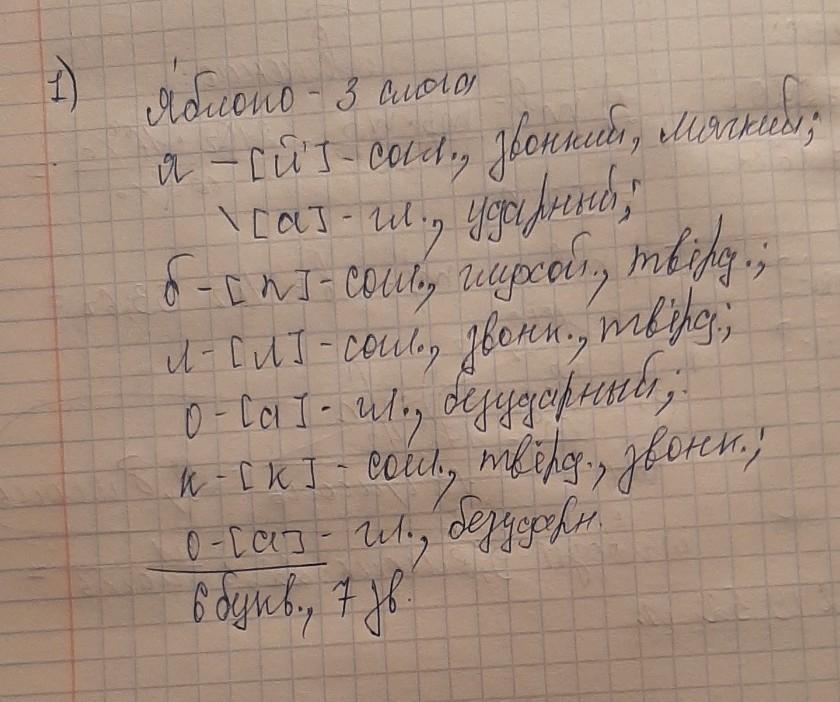 1) Я́блоко - 3 слога
я - [й'] - согл., звонкий, мягкий;
\ [а] - гл., ударный;
б - [п] - согл., глухой., твёрд.;
л - [л] - согл., звонк., твёрд.;
о - [а] - гл., безударный;
к - [к] - согл., твёрд., звонк.;
о - [а] - гл., безударн.
6 букв., 7 зв.